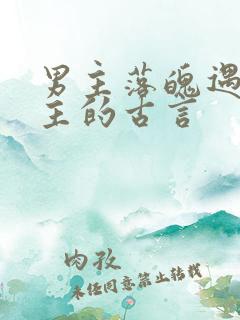 男主落魄遇
主的古言
肉孜
未经同意禁止转载